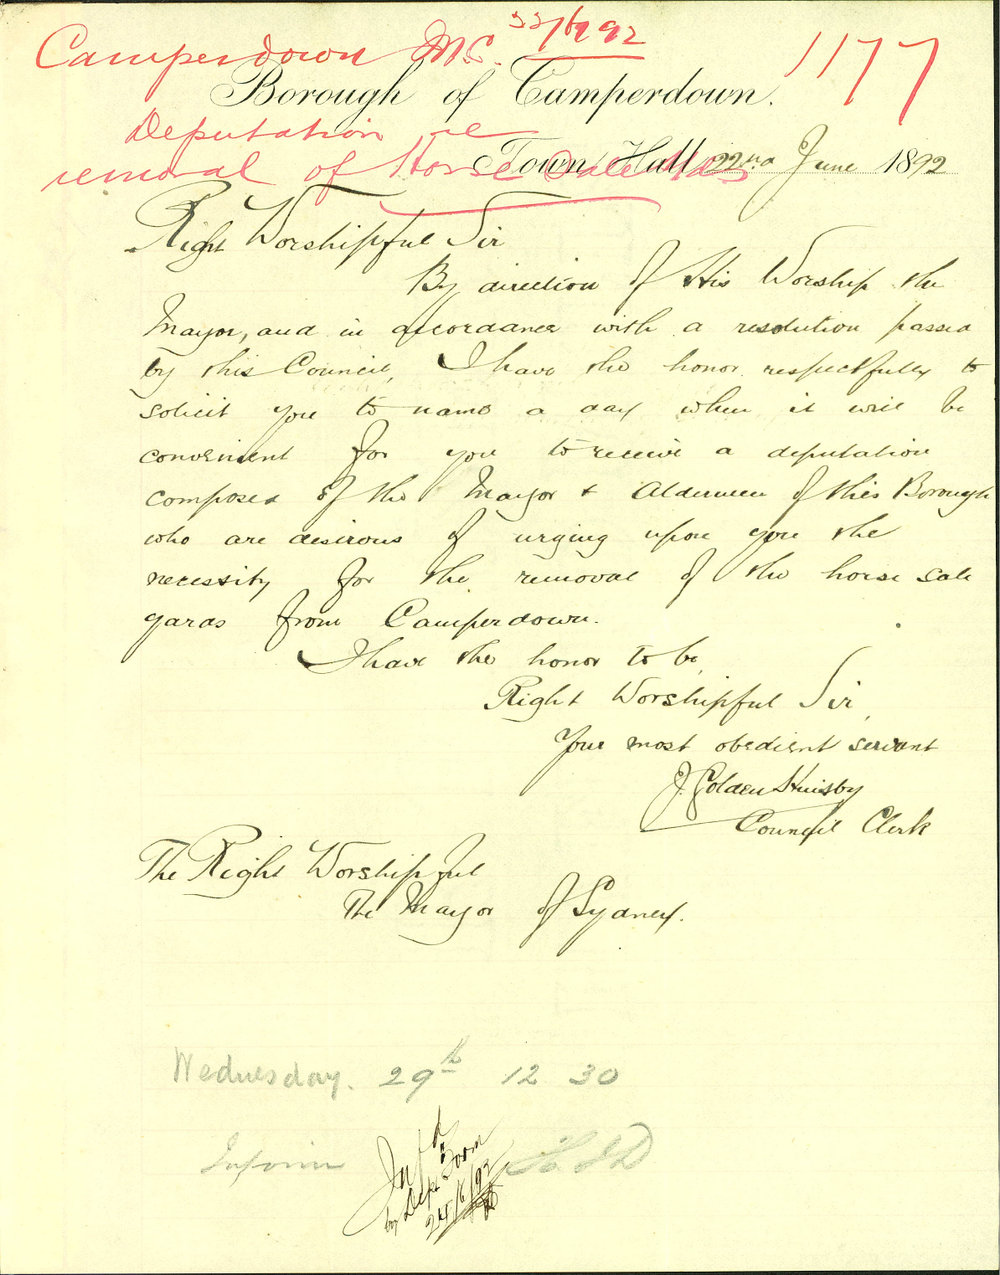 Camperdown M C. 22/6/92
1177
Borough of Camperdown.
Deputation re
removal of Horse Sale Yards
Town Hall 22nd June 1892
Right Worshipful Sir
By direction of His Worship the
Mayor, and in accordance with a resolution passed
by this Council, I have the honor respectfully to
solicit you to name a day when it will be
convenient for you to receive a deputation
composed of the Mayor & Aldermen of this Borough
who are desirous of urging upon you the
necessity for the removal of the horse sale
yards from Camperdown.
I have the honor to be,
Right Worshipful Sir,
Your most obedient servant
J. Golden
Council Clerk
The Right Worshipful
The Mayor of Sydney.
Wednesday. 29th 12 30
Inform
Inf d
by
24/6/92